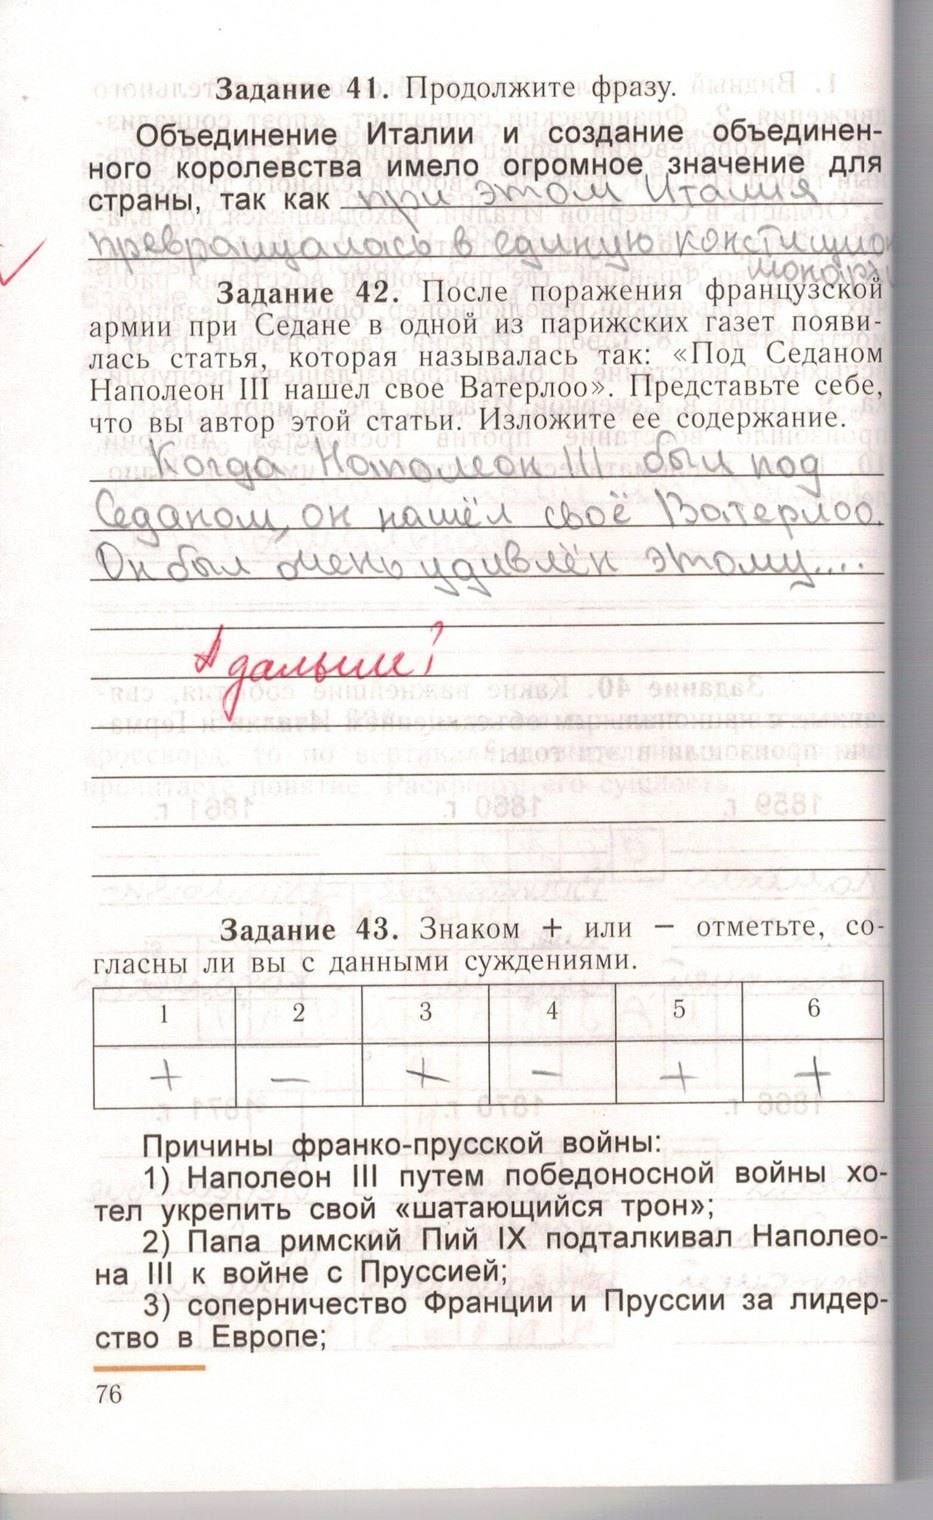 Задание 41. Продолжите фразу.
Объединение Италии и создание объединен-
ного королевства имело огромное значение для
страны, так как при этом Италия
превращалась в единую констицион
монархи
Задание 42. После поражения французской
армии при Седане в одной из парижских газет появи-
лась статья, которая называлась так: «Под Седаном
Наполеон III нашел свое Ватерлоо». Представьте себе,
что вы автор этой статьи. Изложите ее содержание.
Когда Наполеон III был под
Седаном, он нашёл своё Ватерлоо.
Он был очень удивлён этому....
А дальше?
Задание 43. Знаком + или − отметьте, со-
гласны ли вы с данными суждениями.
1 2 3 4 5 6
+ − + − + +
Причины франко-прусской войны:
1) Наполеон III путем победоносной войны хо-
тел укрепить свой «шатающийся трон»;
2) Папа римский Пий IX подталкивал Наполео-
на III к войне с Пруссией;
3) соперничество Франции и Пруссии за лидер-
ство в Европе;
76